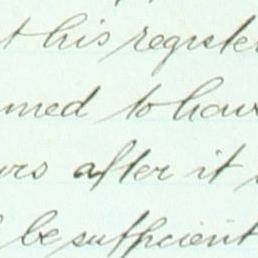 t his registe
med to hav
urs after it
be sufficient